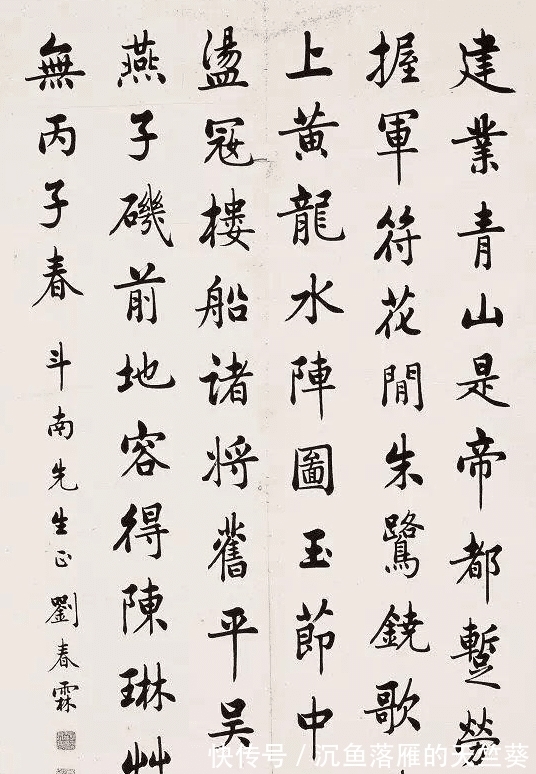 建業青山是帝都蹔勞
握軍符花閒朱鷺鐃歌
上黄龍水陣圖玉節中
盪冦樓船諸將舊平吳
燕子磯前地容得陳琳艸
無丙子春 斗南先生正 劉春霖
快传号 / 沉鱼落雁的天竺葵